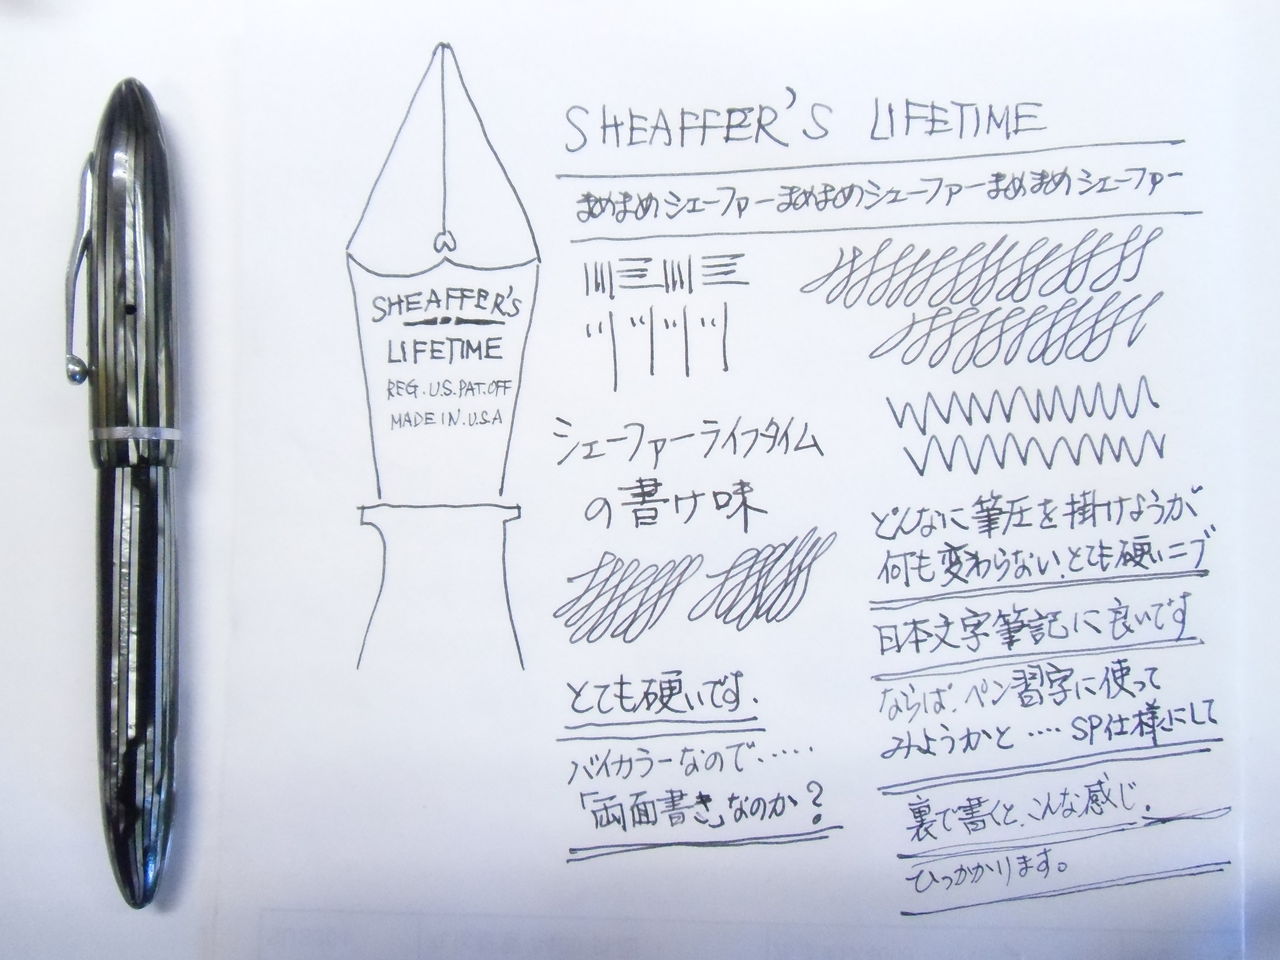 SHEAFFER'S LIFETIME
まめまめシェーファーまめまめシェーファーまめまめシェーファー
SHEAFFER'S
LIFETIME
REG.U.S.PAT.OFF
MADE IN.U.S.A
シェーファーライフタイム
の書け味
とても硬いです.
バイカラーなので.....
「両面書き」なのか?
どんなに筆圧を掛けようが
何も変わらない.とても硬いニブ
日本文字筆記に良いです
ならば.ペン習字に使って
みようかと....SP仕様にして
裏で書くと.こんな感じ.
ひっかかります。